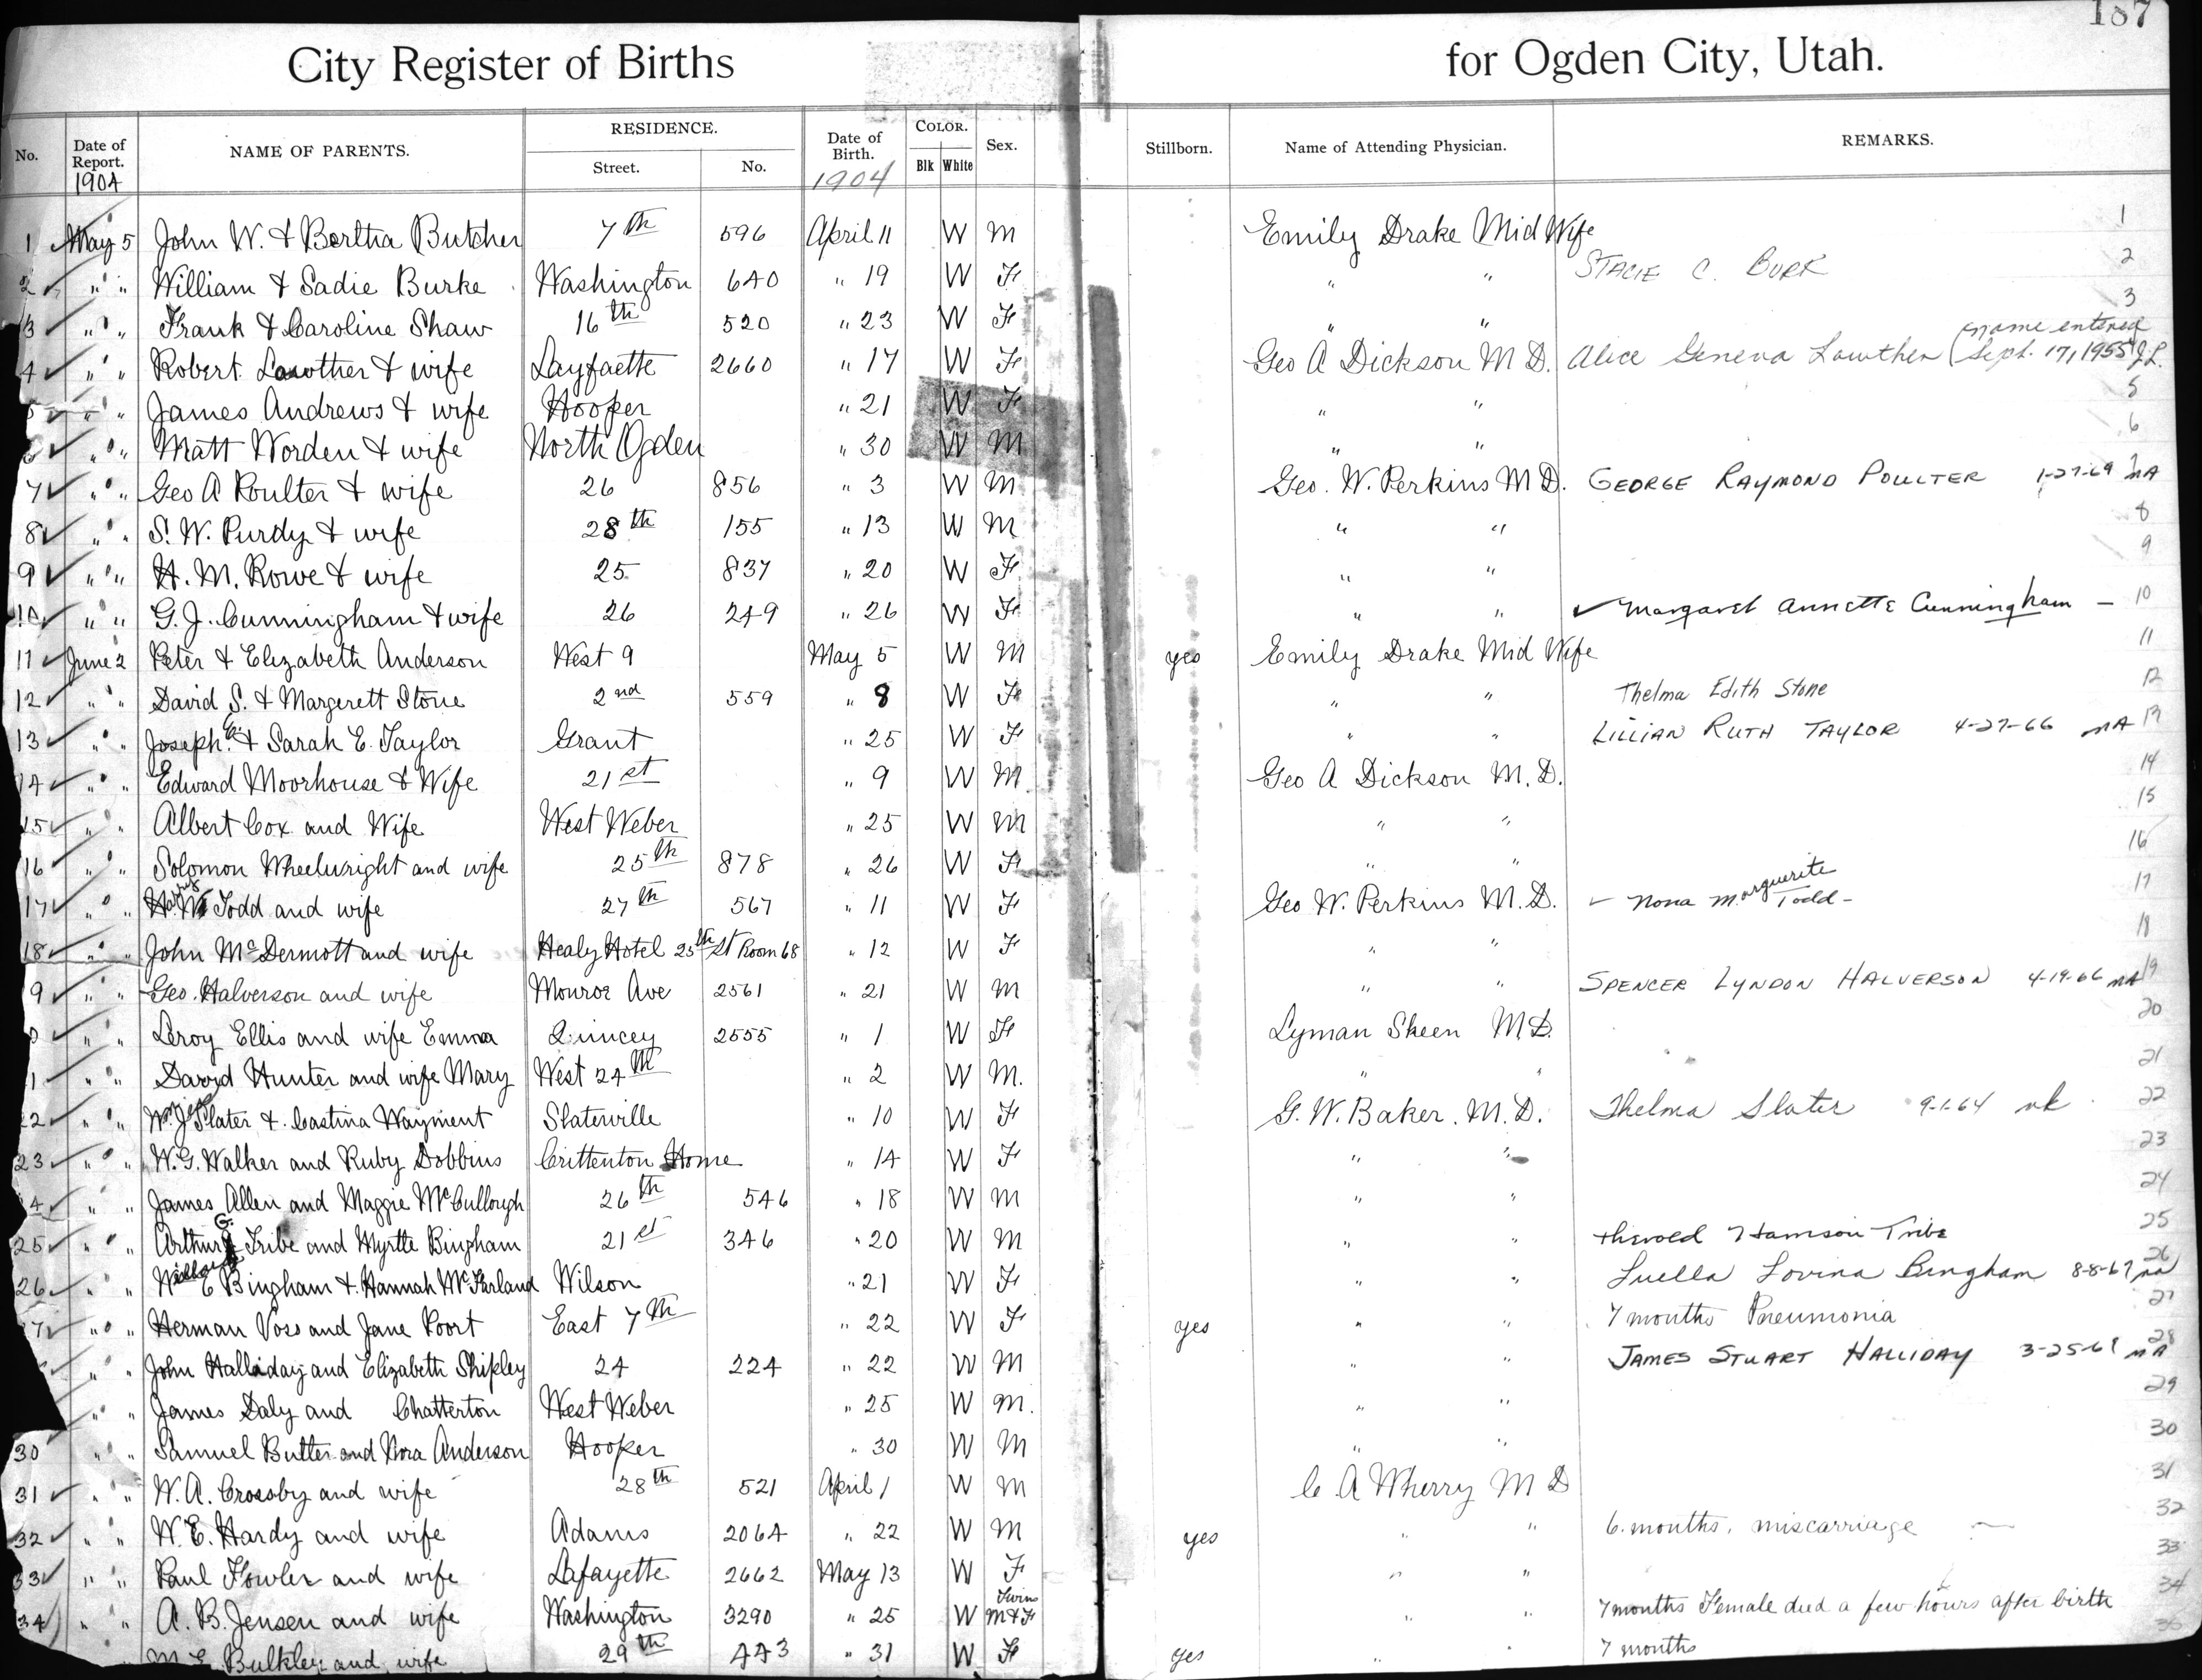 187
City Register of Births for Ogden City, Utah.
No. Date of Report. 1904 NAME OF PARENTS. RESIDENCE. Street. No. Date of Birth. 1904 COLOR. Blk White Sex. Stillborn. Name of Attending Physician. REMARKS.
1 May 5 John W. & Bertha Butcher 7th 596 April 11 W M Emily Drake Mid Wife 1
2 " " William & Sadie Burke Washington 640 " 19 W F " " STACIE C. BURK 2
3 " " Frank & Caroline Shaw 16th 520 " 23 W F " " 3
4 " " Robert Lowther & wife Layfaette 2660 " 17 W F Geo A Dickson M D. Alice Geneva Lowther (name entered Sept. 17, 1955 J.L.
5 " " James Andrews & wife Hooper " 21 W F " " 5
6 " " Matt Worden & wife North Ogden " 30 W M " " 6
7 " " Geo A Poulter & wife 26 856 " 3 W M Geo. W. Perkins M D. GEORGE RAYMOND POULTER 1-27-69 MA 7
8 " " S. W. Purdy & wife 28th 155 " 13 W M " " 8
9 " " H. M. Rowe & wife 25 837 " 20 W F " " 9
10 " " G. J. Cunningham & wife 26 249 " 26 W F " " Margaret Annette Cunningham - 10
11 June 2 Peter & Elizabeth Anderson West 9 May 5 W M yes Emily Drake Mid Wife 11
12 " " David S. & Margerett Stone 2nd 559 " 8 W F " " Thelma Edith Stone 12
13 " " Joseph & Sarah E. Taylor Grant " 25 W F " " LILLIAN RUTH TAYLOR 4-27-66 MA 13
14 " " Edward Moorhouse & Wife 21st " 9 W M Geo A Dickson M. D. 14
15 " " Albert Cox and Wife West Weber " 25 W M " " 15
16 " " Solomon Wheelwright and wife 25th 878 " 26 W F " " 16
17 " " Harry Todd and wife 27th 567 " 11 W F Geo W. Perkins M. D. Nona Marguerite Todd - 17
18 " " John McDermott and wife Healy Hotel 25th St Room 68 " 12 W F " " 18
9 " " Geo. Halverson and wife Monroe Ave 2561 " 21 W M " " SPENCER LYNDON HALVERSON 4-19-66 MA 19
" " Leroy Ellis and wife Emma Quincey 2555 " 1 W F Lyman Skeen M D. 20
1 " " David Hunter and wife Mary West 24th " 2 W M. " " 21
22 " " Wm J Slater & Castina Wayment Slaterville " 10 W F G. W. Baker. M. D. Thelma Slater 9-1-64 22
23 " " W. G. Walker and Ruby Dobbins Crittenton Home " 14 W F " " 23
4 " " James Allen and Maggie McCullough 26th 546 " 18 W M " " 24
25 " " Arthur G. Tribe and Myrtle Bingham 21st 346 " 20 W M " " Harrison Tribe 25
26 " " Willard E Bingham & Hannah McFarland Wilson " 21 W F " " Luella Lovina Bingham 8-8-67 26
7 " " Herman Voss and Jane Poort East 7th " 22 W F yes " " 7 months Pneumonia 27
" " John Halliday and Elizabeth Shipley 24 224 " 22 W M " " JAMES STUART HALLIDAY 3-25-61 MA 28
" " James Daly and Chatterton West Weber " 25 W M. " " 29
30 " " Samuel Butler and Nora Anderson Hooper " 30 W M " " 30
31 " " W. A. Crossby and wife 28th 521 April 1 W M C. A Wherry M D 31
32 " " W. E. Hardy and wife Adams 2064 " 22 W M yes " " 6. months. miscarriage 32
33 " " Paul Fowler and wife Lafayette 2662 May 13 W F " " 33
34 " " A. B. Jensen and wife Washington 3290 " 25 W Twins M & F " " 7 months Female died a few hours after birth 34
" M. E. Bulkley and wife 29th 443 " 31 W F yes " " 7 months 35